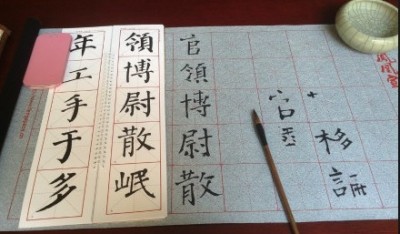 移
官領博尉散
領博尉散岷
年工手于多